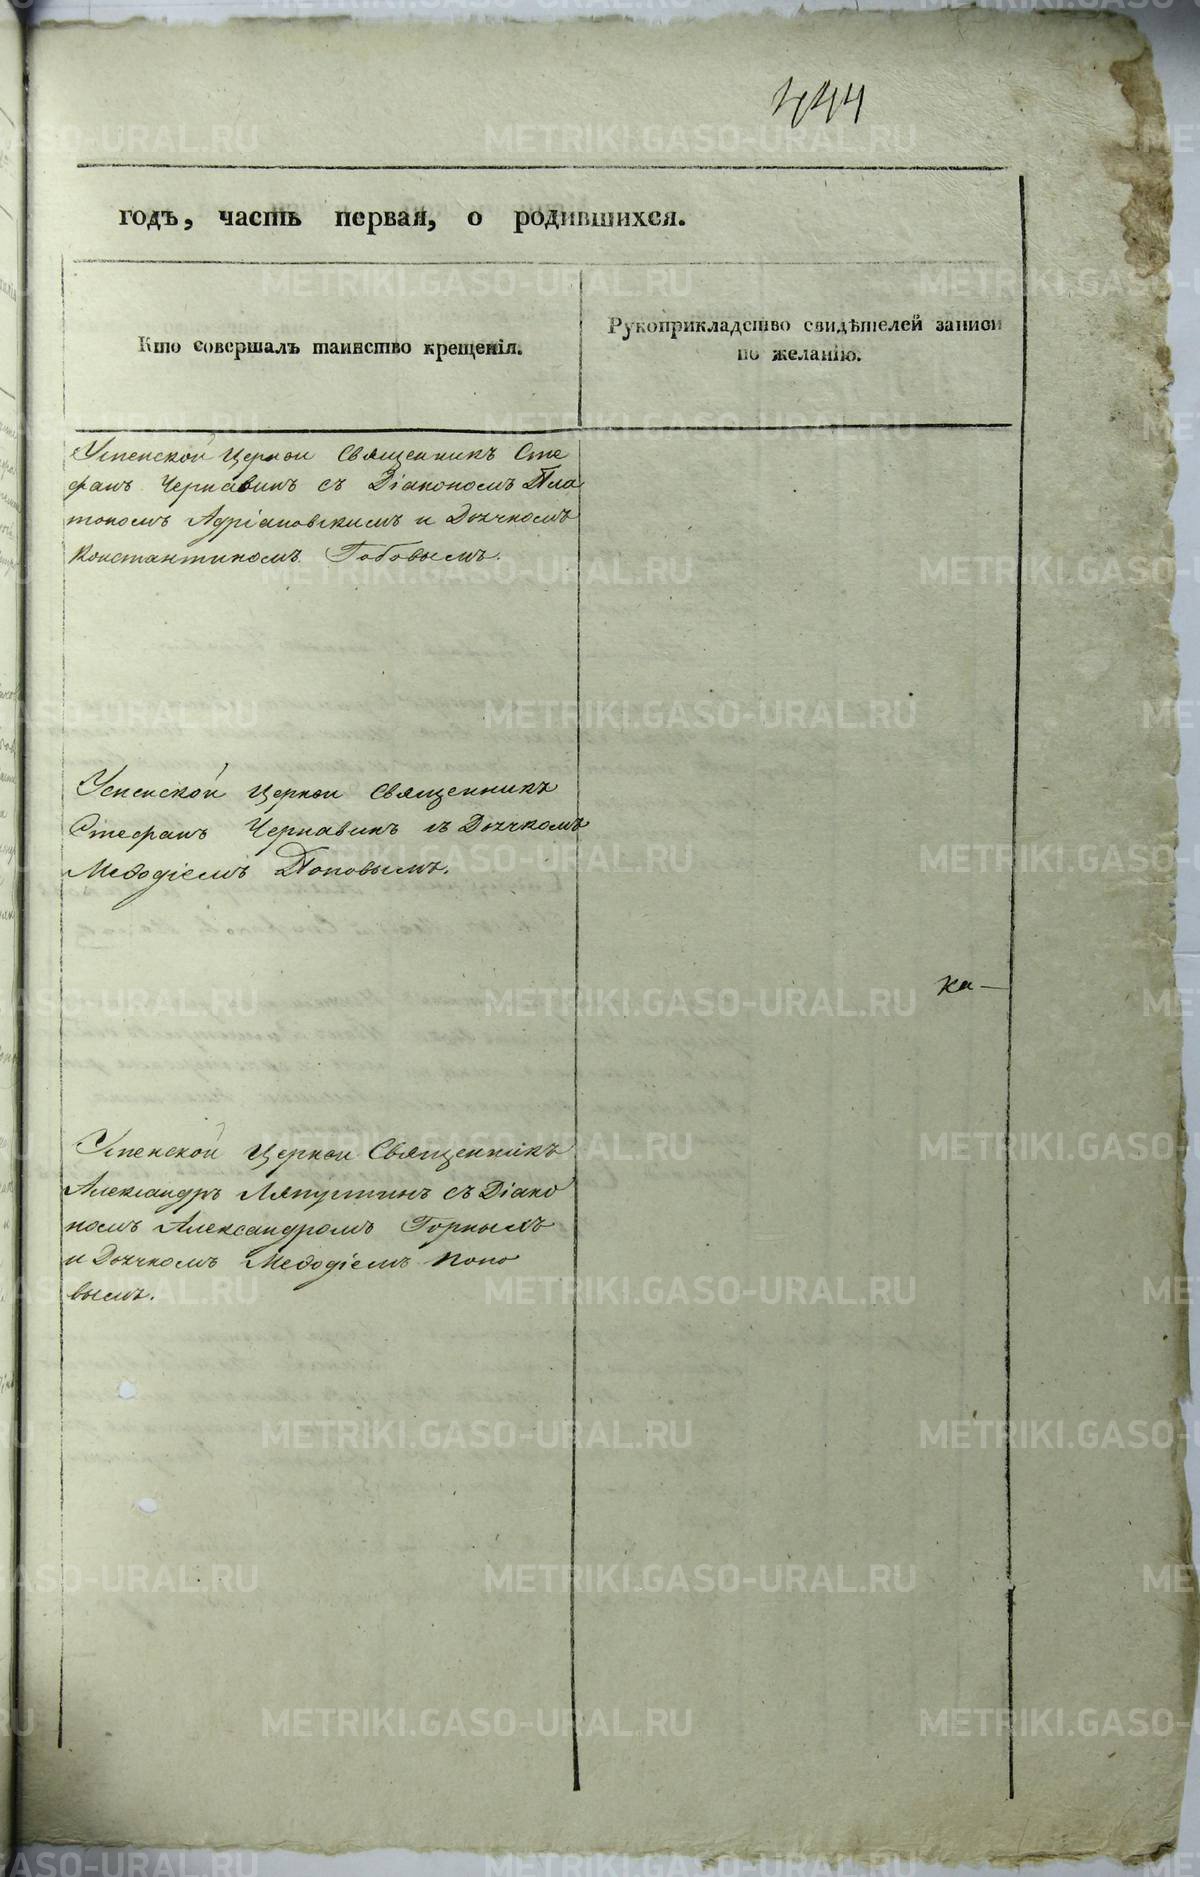 444
годъ, часть первая, о родившихся.
Кто совершалъ таинство крещенія.
Рукоприкладство свидѣтелей записи
по желанію.
Успенской Церкви Священникъ Сте
фанъ Чернавинъ съ Діакономъ Пла
тономъ Адріановскимъ и Дьячкомъ
Константиномъ Гобовымъ.
Успенской Церкви Священникъ
Стефанъ Чернавинъ съ Дьячкомъ
Меѳодіемъ Поповымъ.
ка—
Успенской Церкви Священникъ
Александръ Ляпустинъ съ Діако
номъ Александромъ Горныхъ
и Дьячкомъ Меѳодіемъ Попо
вымъ.
METRIKI.GASO-URAL.RU